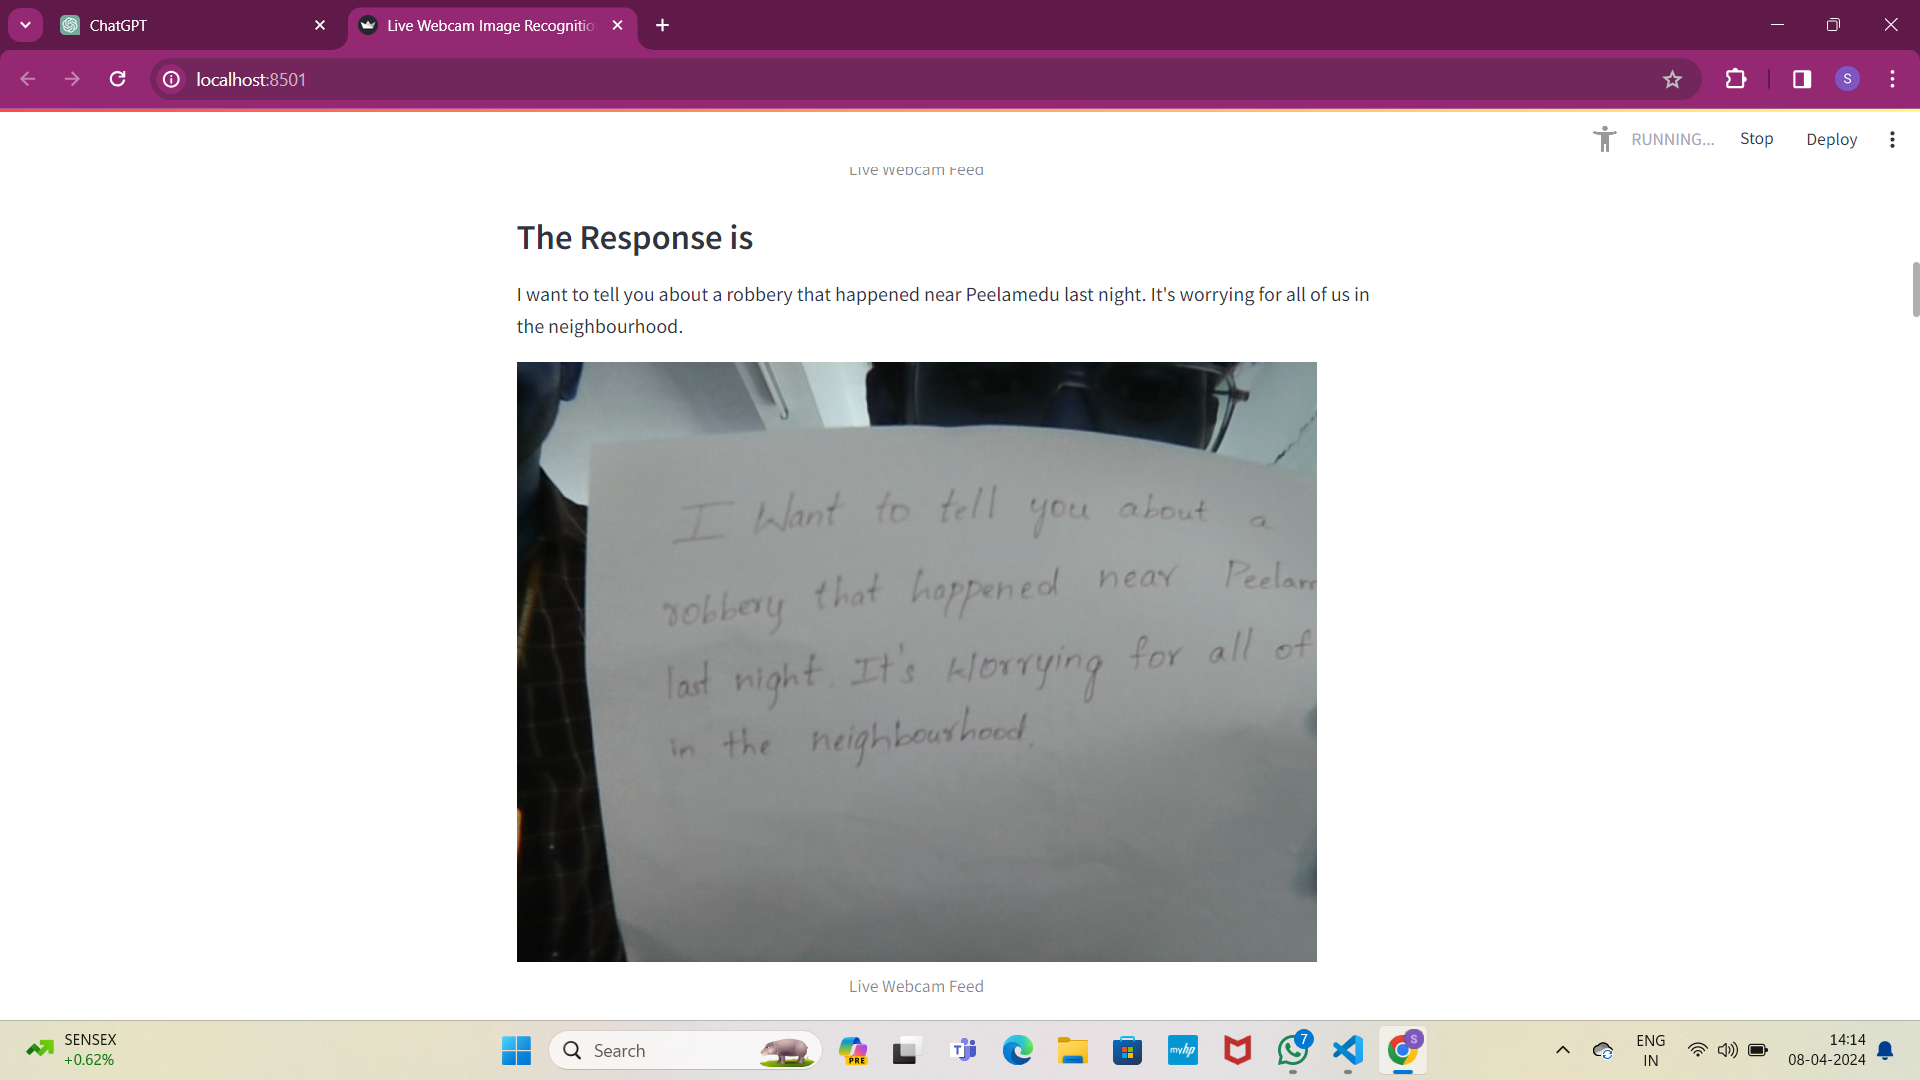 ChatGPT
Live Webcam Image Recognitio
localhost:8501
RUNNING...
Stop
Deploy
Live Webcam Feed
The Response is
I want to tell you about a robbery that happened near Peelamedu last night. It's worrying for all of us in
the neighbourhood.
I Want to tell you about a
robbery that happened near Peelam
last night. It's Worrying for all of
in the neighbourhood.
Live Webcam Feed
SENSEX
+0.62%
Search
PRE
T
myhp
7
S
S
ENG
IN
14:14
08-04-2024